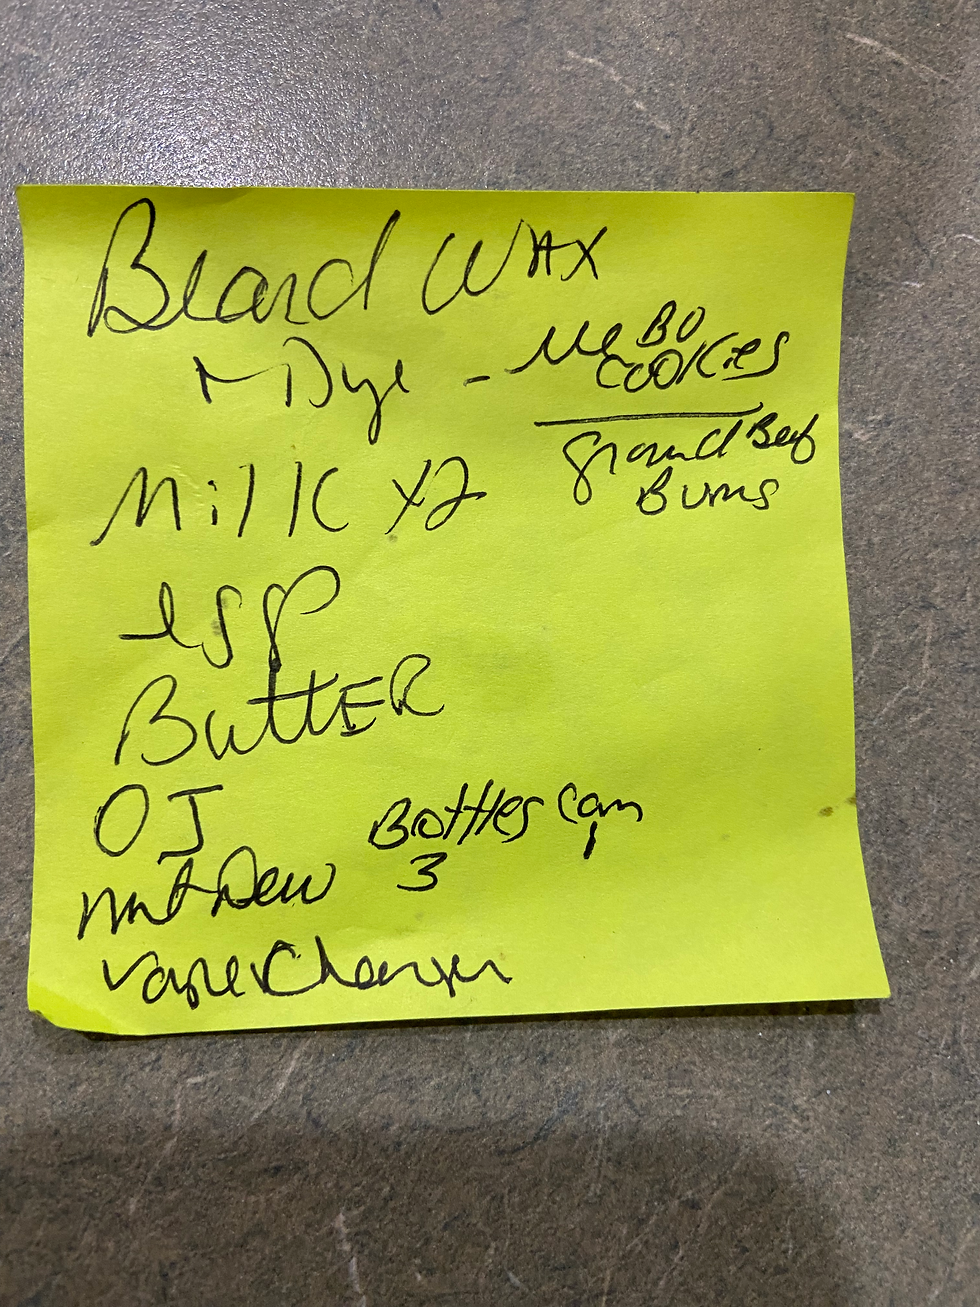 Beard WAX
+ Dye -
BO
COOKies
ground Beef
Buns
Milk x2
egg
ButtER
OJ
Bottles can
mnt Dew 3 1
vape Charger